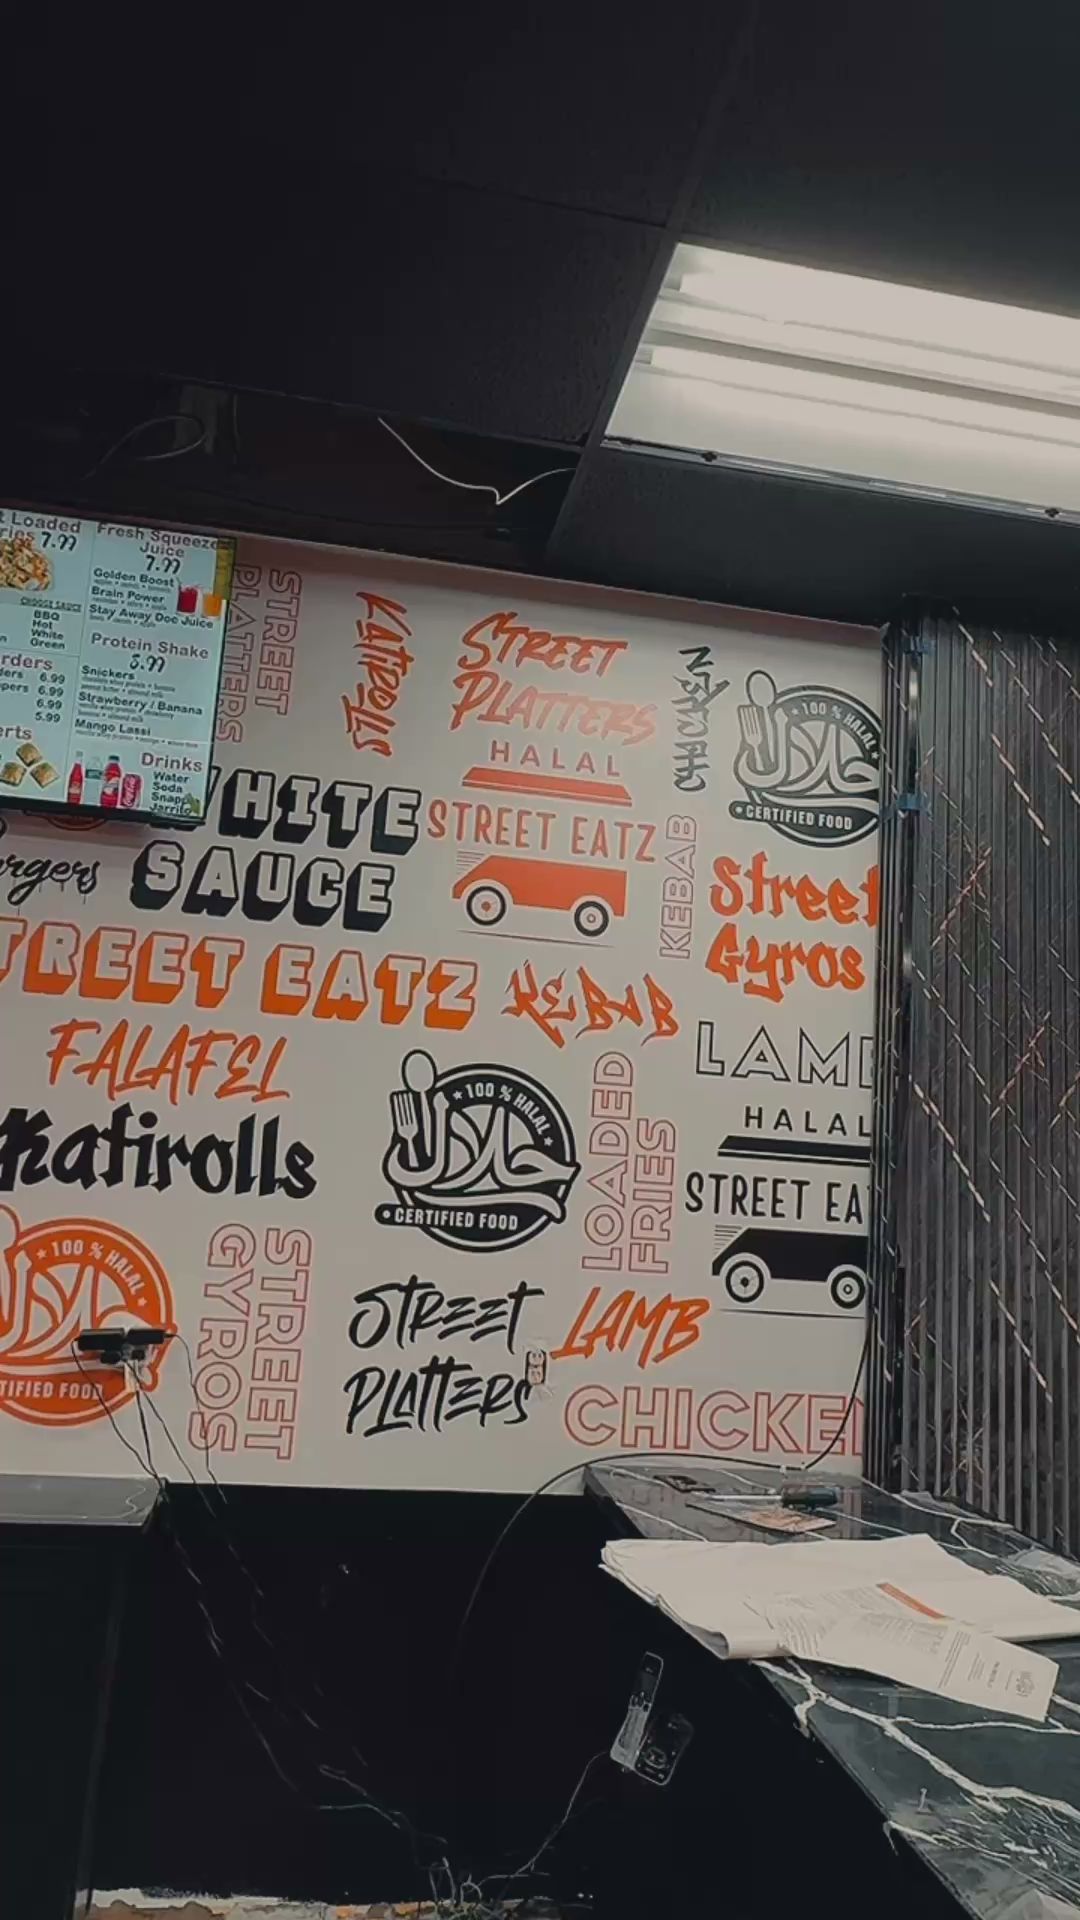 Loaded
7.99
CHOOSE SAUCE
BBQ
Hot
White
Green
6.99
6.99
6.99
5.99
Fresh Squeeze
Juice
7.99
Golden Boost
Brain Power
Stay Away Doc Juice
Protein Shake
Snickers
Strawberry / Banana
Mango Lassi
Drinks
Water
Soda
STREET
PLATTERS
KATIROLLS
STREET
PLATTERS
HALAL
STREET EATZ
CHICKEN
100% HALAL
حلال
CERTIFIED FOOD
WHITE
SAUCE
KEBAB
Street
Gyros
STREET EATZ
KEBAB
FALAFEL
Katirolls
100% HALAL
حلال
CERTIFIED FOOD
LOADED
FRIES
LAMB
HALAL
STREET EA
100% HALAL
حلال
TIFIED FOOD
STREET
GYROS
STREET
PLATTERS
LAMB
CHICKEN